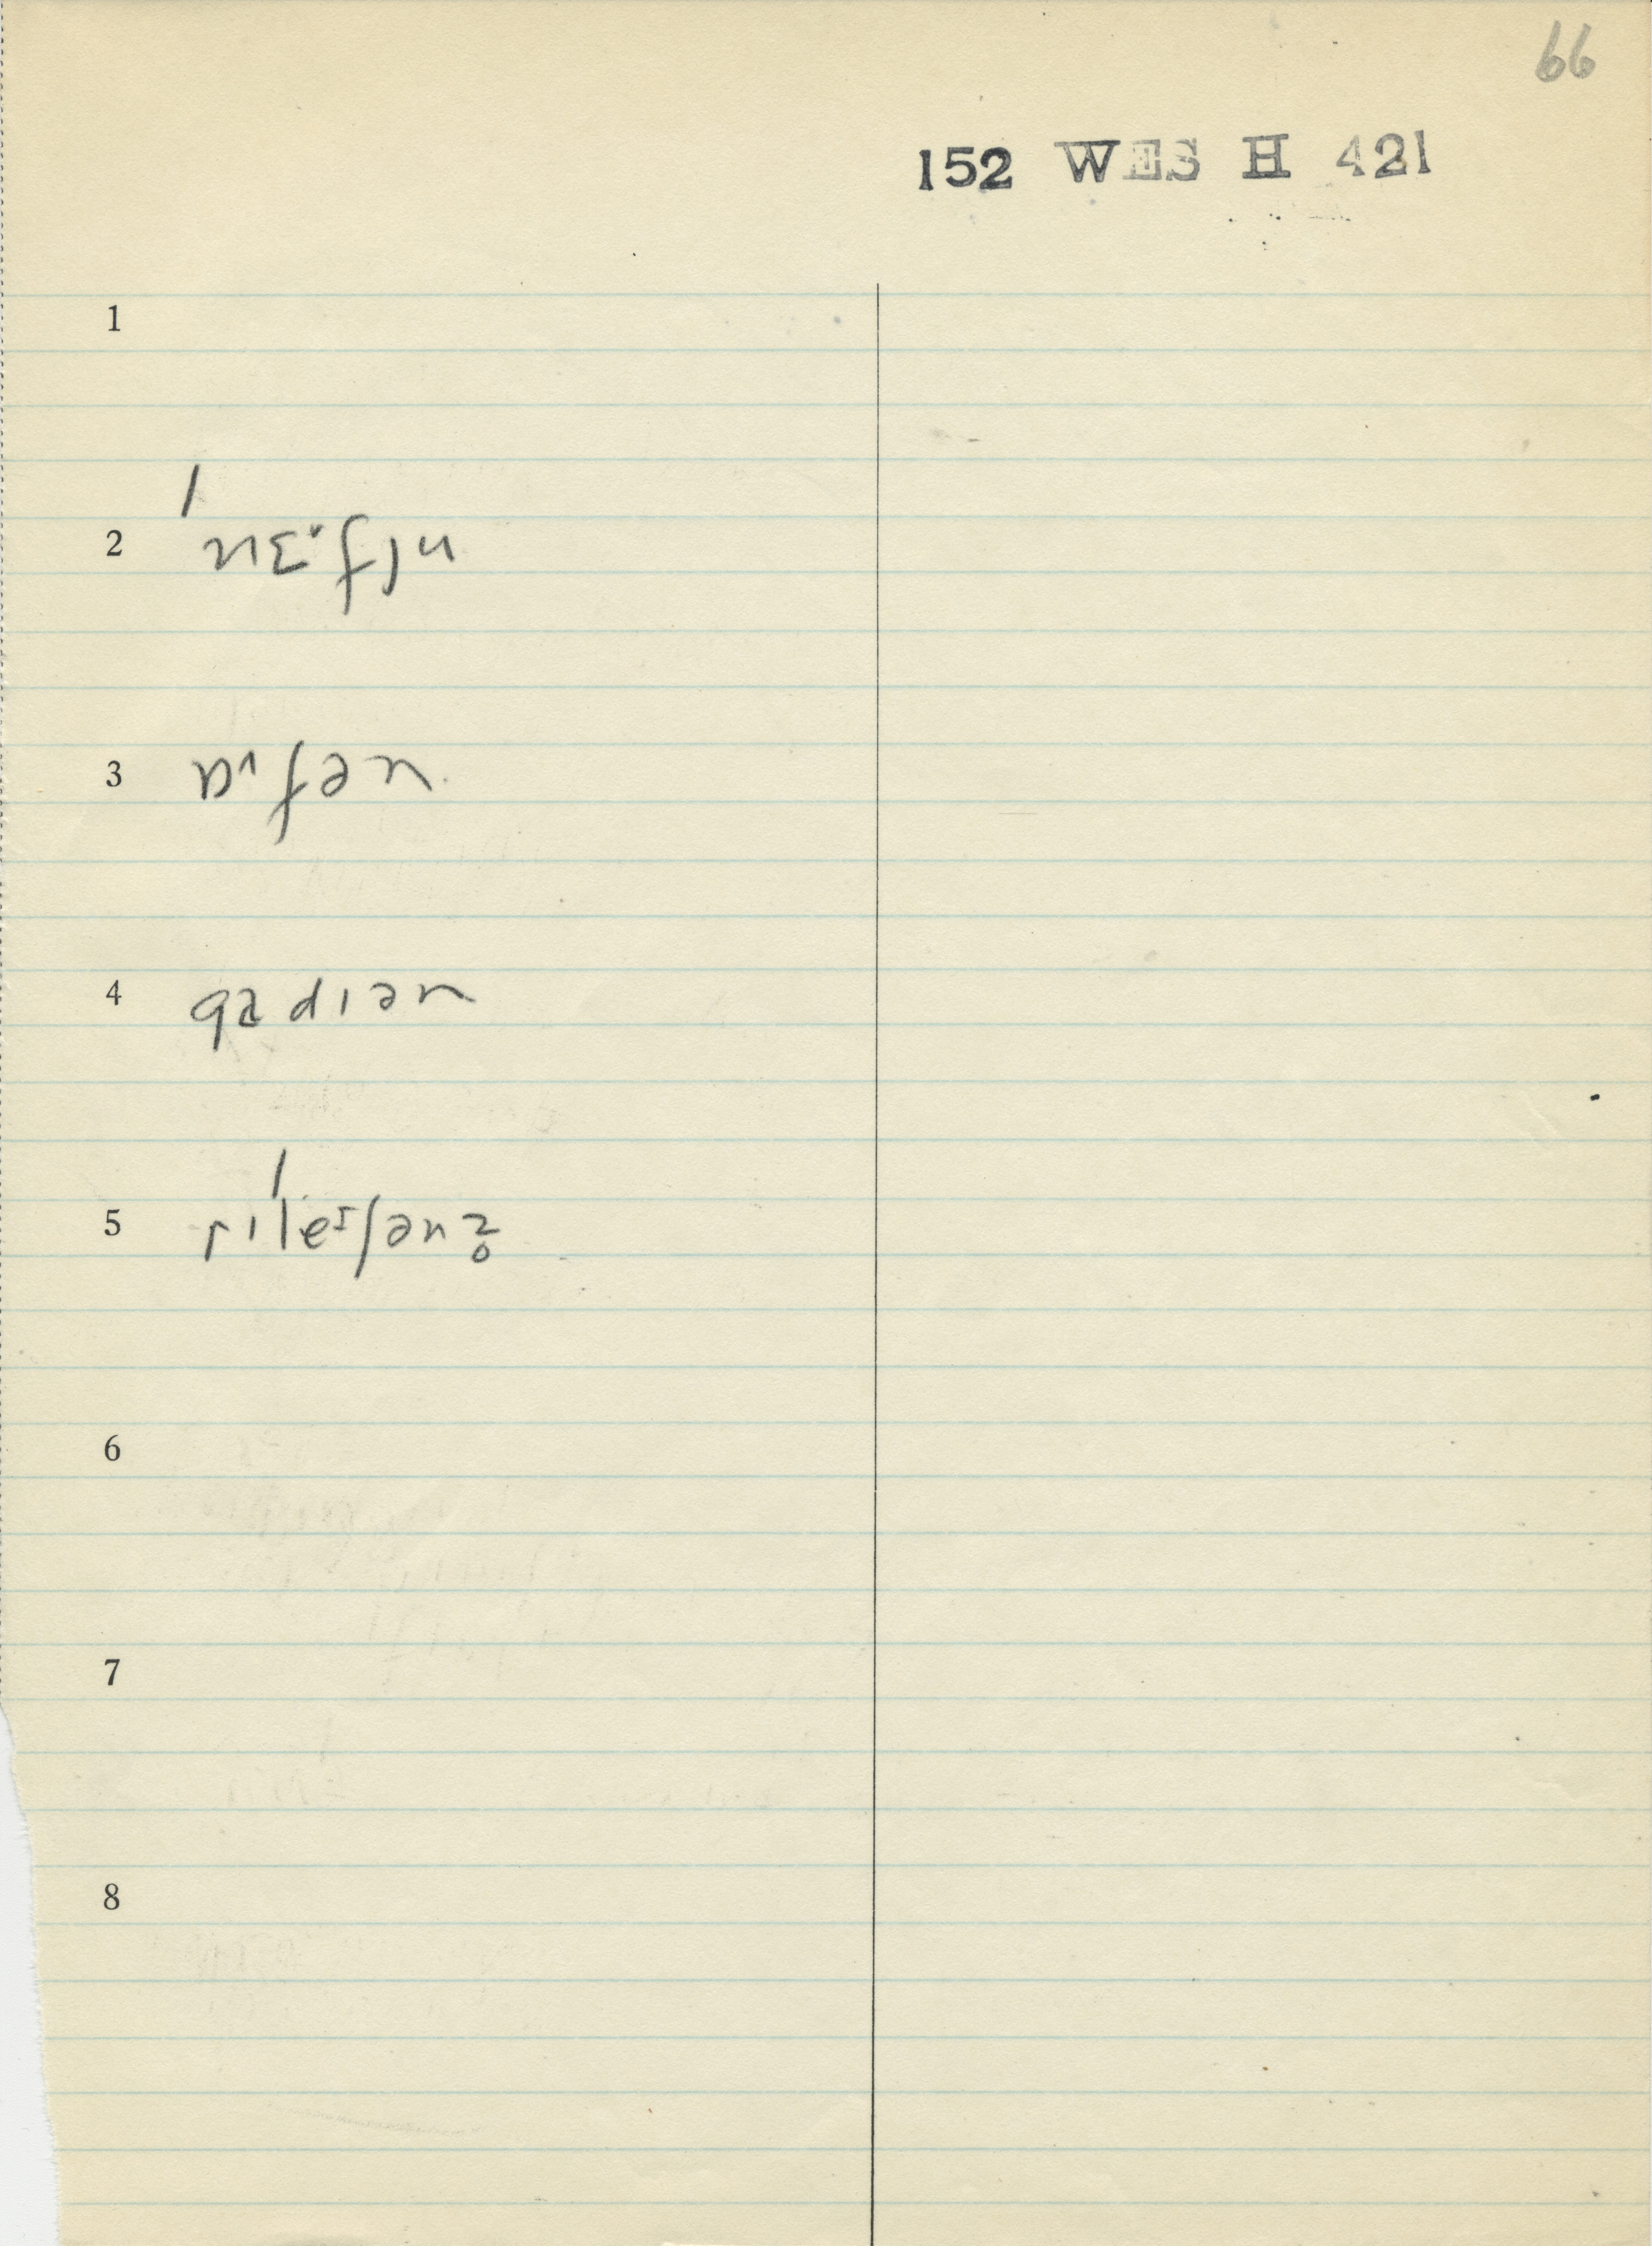 66
152 WES H 421
1
2 ˈnɪɛ·fju
3 ɒ^fən
4 gadɪən
5 rɪˈleɪʃənz̥
6
7
8